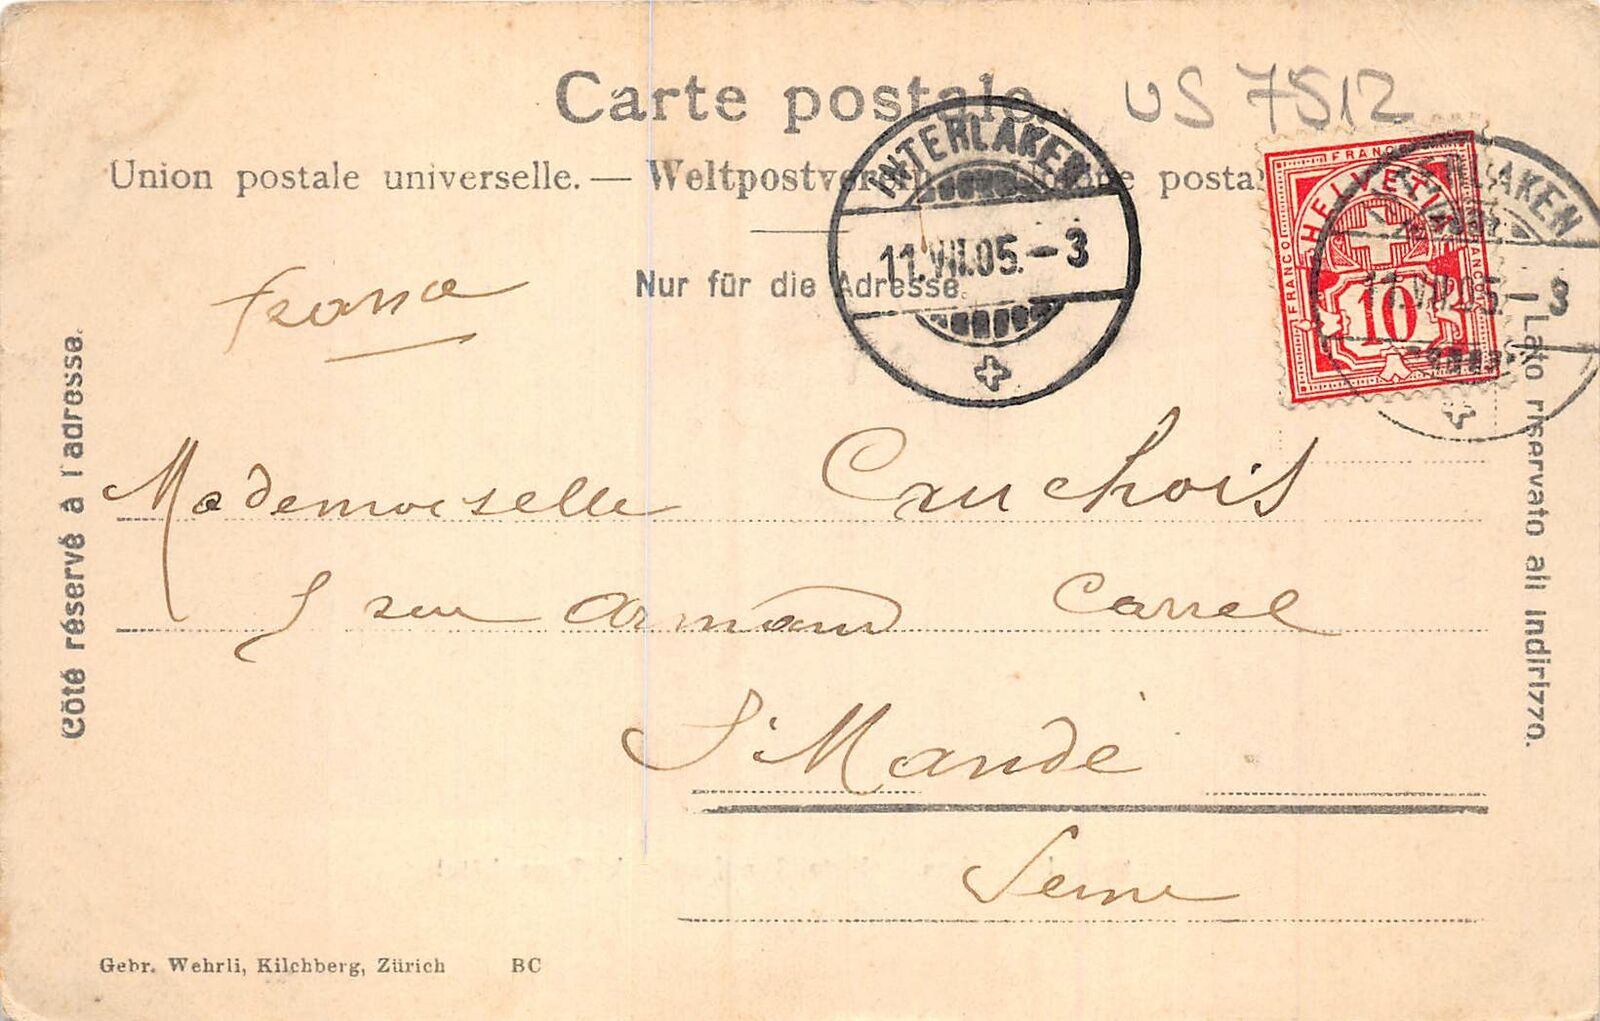 Carte postale.
US 7512
Union postale universelle. — Weltpostverein posta
Nur für die Adresse.
INTERLAKEN
11.VII.05.-3
FRANCO
HELVETIA
FRANCO
FRANCO
10
INTERLAKEN
11.VII.05.-3
France
Côté réservé à l'adresse.
Lato riservato all indirizzo.
Mademoiselle Cruchois
5 rue Armand Carrel
St Mandé
Seine
Gebr. Wehrli, Kilchberg, Zürich BC